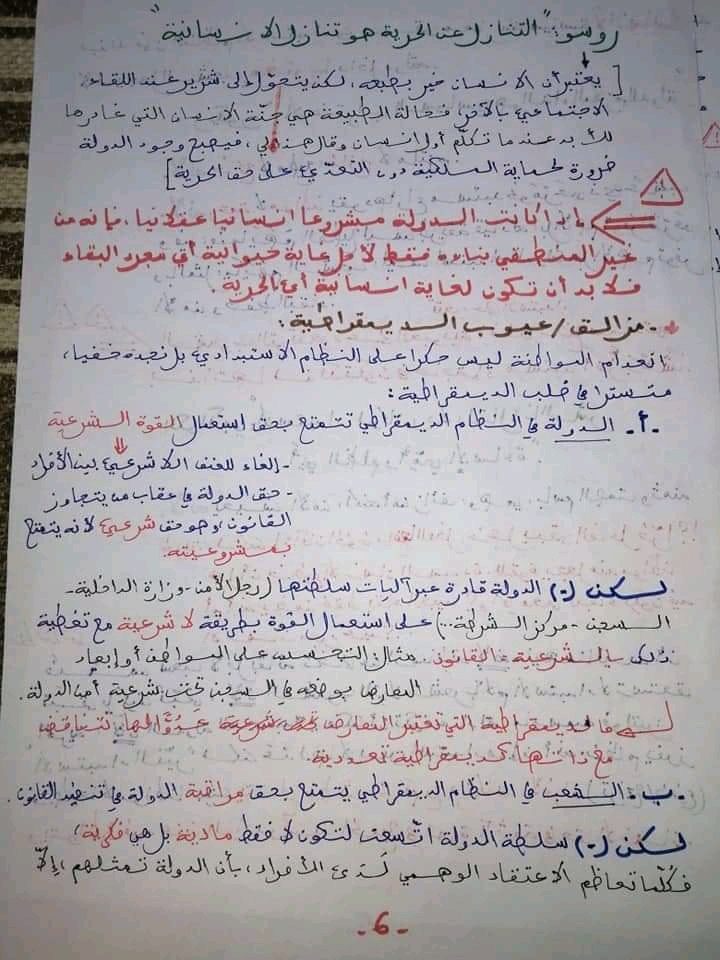 روسو: "التنازل عن الحرية هو تنازل الانسانية"
[يعتبر أن الانسان خير بطبعه، لكن يتحول إلى شرير عند اللقاء
الاجتماعي بالآخر، فحالة الطبيعة هي جنّة الانسان التي غادرها
للأبد عندما تكلّم أول انسان وقال هذا لي، فيصبح وجود الدولة
ضرورة لحماية الملكية دون التعدّي على حق الحرية]
إذا كانت الدولة مشروعا انسانيا عقلانيا، فإنه من
غير المنطقي بناءه فقط لأجل غاية حيوانية أي مجرد البقاء
فلا بد أن تكون لغاية انسانيّة أي الحرية.
- مزالق/عيوب الديمقراطية:
انعدام المواطنة ليس حكرا على النظام الاستبدادي بل نجده خفيا،
متسترا في صلب الديمقراطية:
-أ- الدولة في النظام الديمقراطي تتمتع بحق استعمال القوة الشرعية
- إلغاء للعنف اللاشرعي بين الأفراد
- حق الدولة في عقاب من يتجاوز
القانون، وهو حق شرعي لأنه يتمتع
بمشروعيته.
لكن (-) الدولة قادرة عبر آليات سلطتها (رجل الأمن - وزارة الداخلية -
السجن - مركز الشرطة...) على استعمال القوة بطريقة لا شرعية مع تغطية
ذلك بالشرعية = القانون. مثال: التجسس على المواطن أو إبعاد
المعارض بوضعه في السجن تحت شرعية أمن الدولة.
فالديمقراطية التي تعتبر المعارض عدوّا لها تتناقض
مع ذاتها كديمقراطية تعددية.
-ب- الشعب في النظام الديمقراطي يتمتع بحق مراقبة الدولة في تنفيذ القانون.
لكن (-) سلطة الدولة اتّسعت لتكون لا فقط مادية بل هي فكرية،
فكلّما تعاظم الاعتقاد الوهمي لَدَى الأفراد، بأن الدولة تمثلهم، إلّا
- 6 -